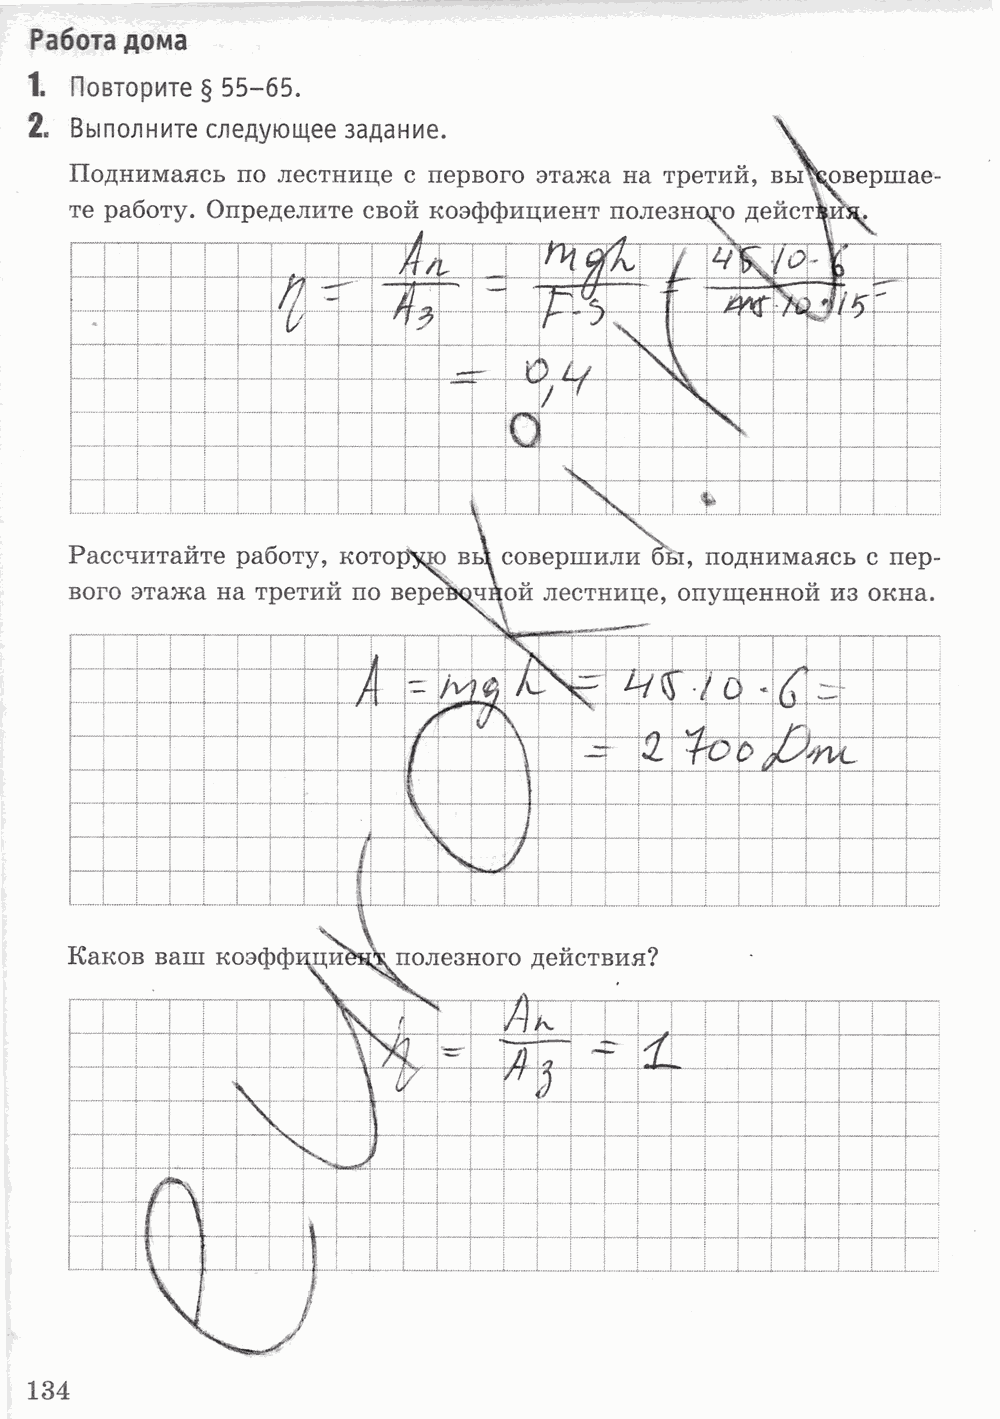 Работа дома
1. Повторите § 55–65.
2. Выполните следующее задание.
Поднимаясь по лестнице с первого этажа на третий, вы совершае-
те работу. Определите свой коэффициент полезного действия.
η = Aп/Aз = mgh/F·S = 45·10·6/45·10·15 =
= 0,4
Рассчитайте работу, которую вы совершили бы, поднимаясь с пер-
вого этажа на третий по веревочной лестнице, опущенной из окна.
A = mgh = 45·10·6 =
= 2700 Дж
Каков ваш коэффициент полезного действия?
η = Aп/Aз = 1
134